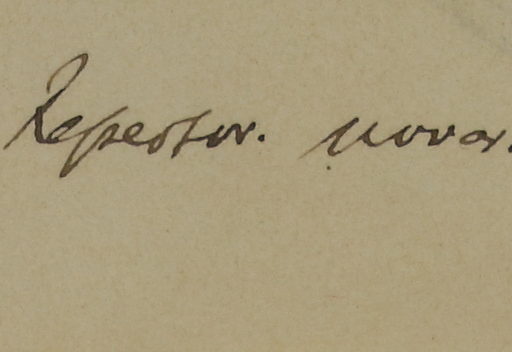 Repertor. novar.